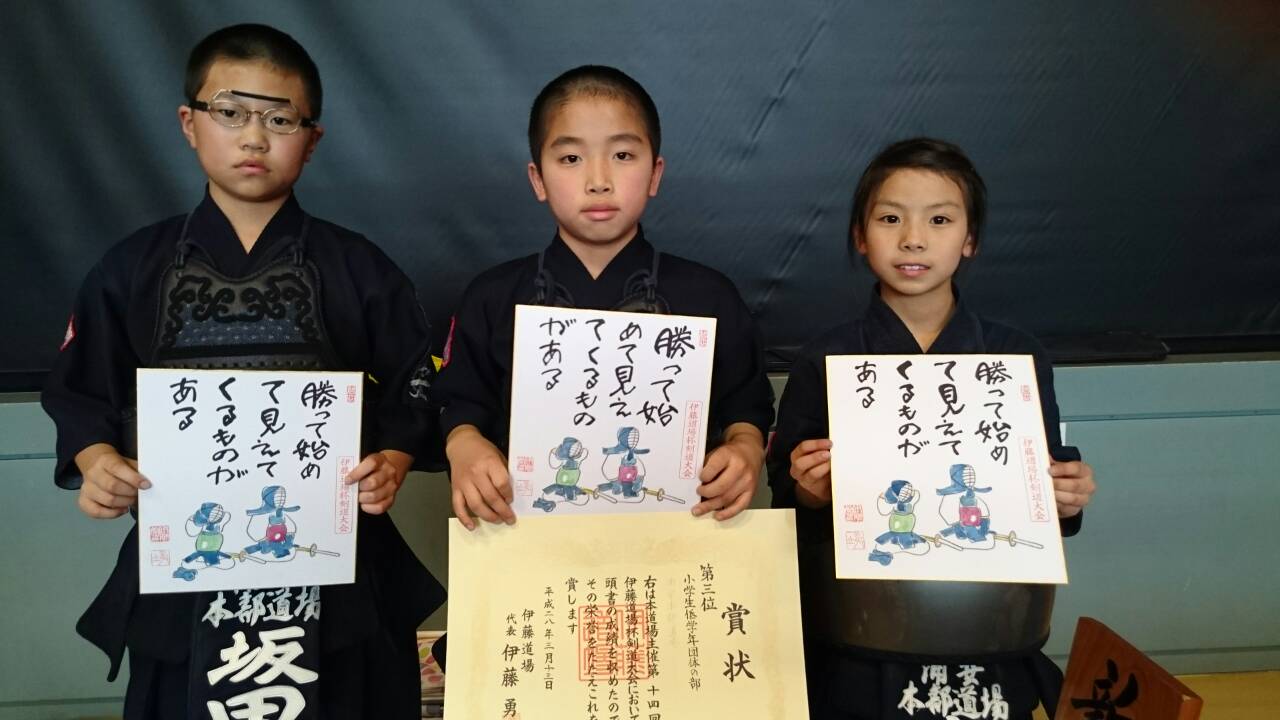 勝って始め
て見えて
くるものが
ある
伊藤道場杯剣道大会
勝って始
めて見え
てくるもの
がある
伊藤道場杯剣道大会
勝って始め
て見えて
くるものが
ある
伊藤道場杯剣道大会
賞状
第三位
小学生低学年団体の部
右は本道場主催第十四回
伊藤道場杯剣道大会において
頭書の成績を収めたので
その栄誉をたたえこれを
賞します
平成二八年三月十三日
伊藤道場
代表 伊藤勇
本部道場
坂田
本部道場